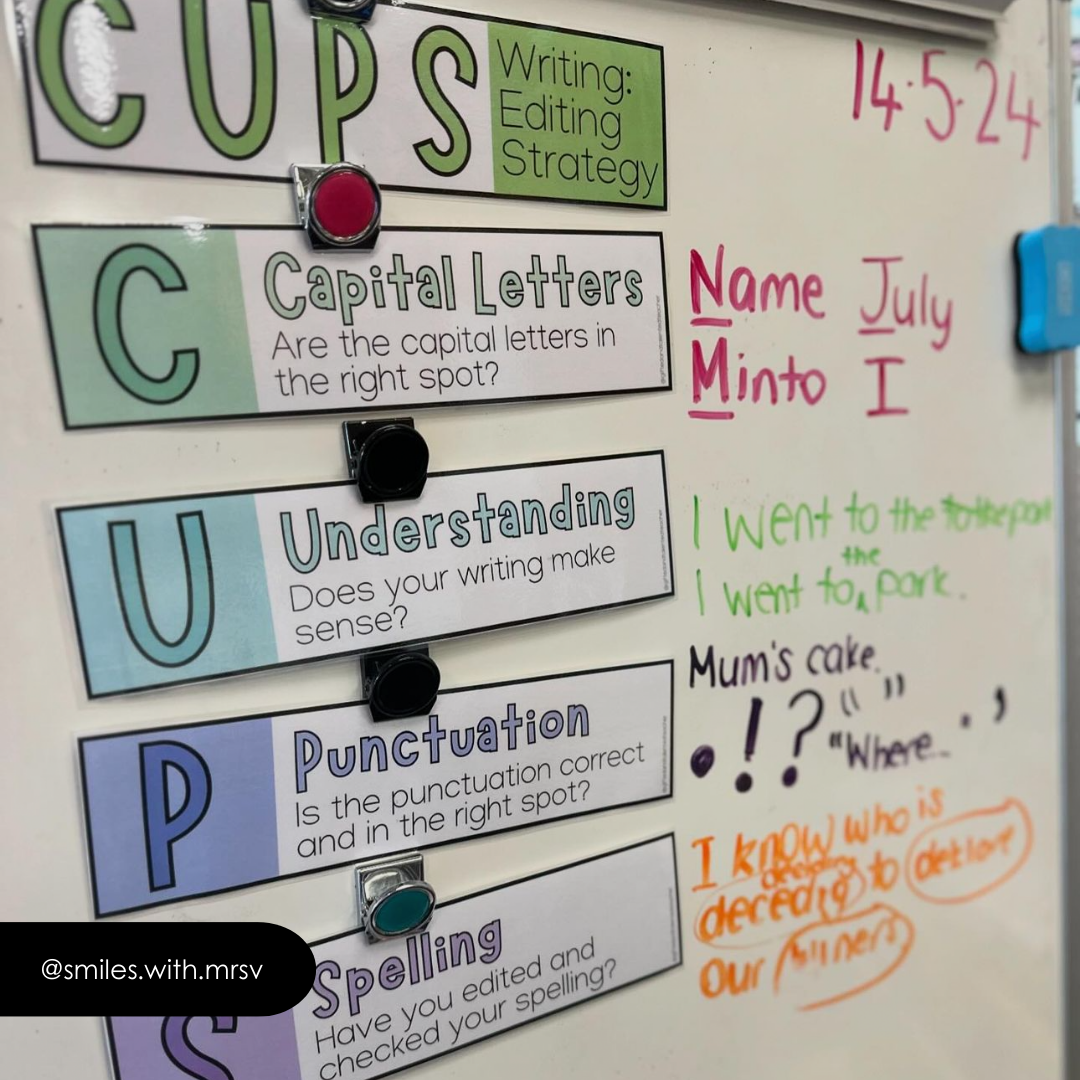 CUPS
Writing:
Editing
Strategy
14.5.24
C
Capital Letters
Are the capital letters in
the right spot?
Name July
Minto I
U
Understanding
Does your writing make
sense?
I went to the to the park
the
I went to ^ park.
P
Punctuation
Is the punctuation correct
and in the right spot?
Mum's cake.
. ! ? " " . ,
"Where...
S
Spelling
Have you edited and
checked your spelling?
I know who is
decedig to
our
@smiles.with.mrsv